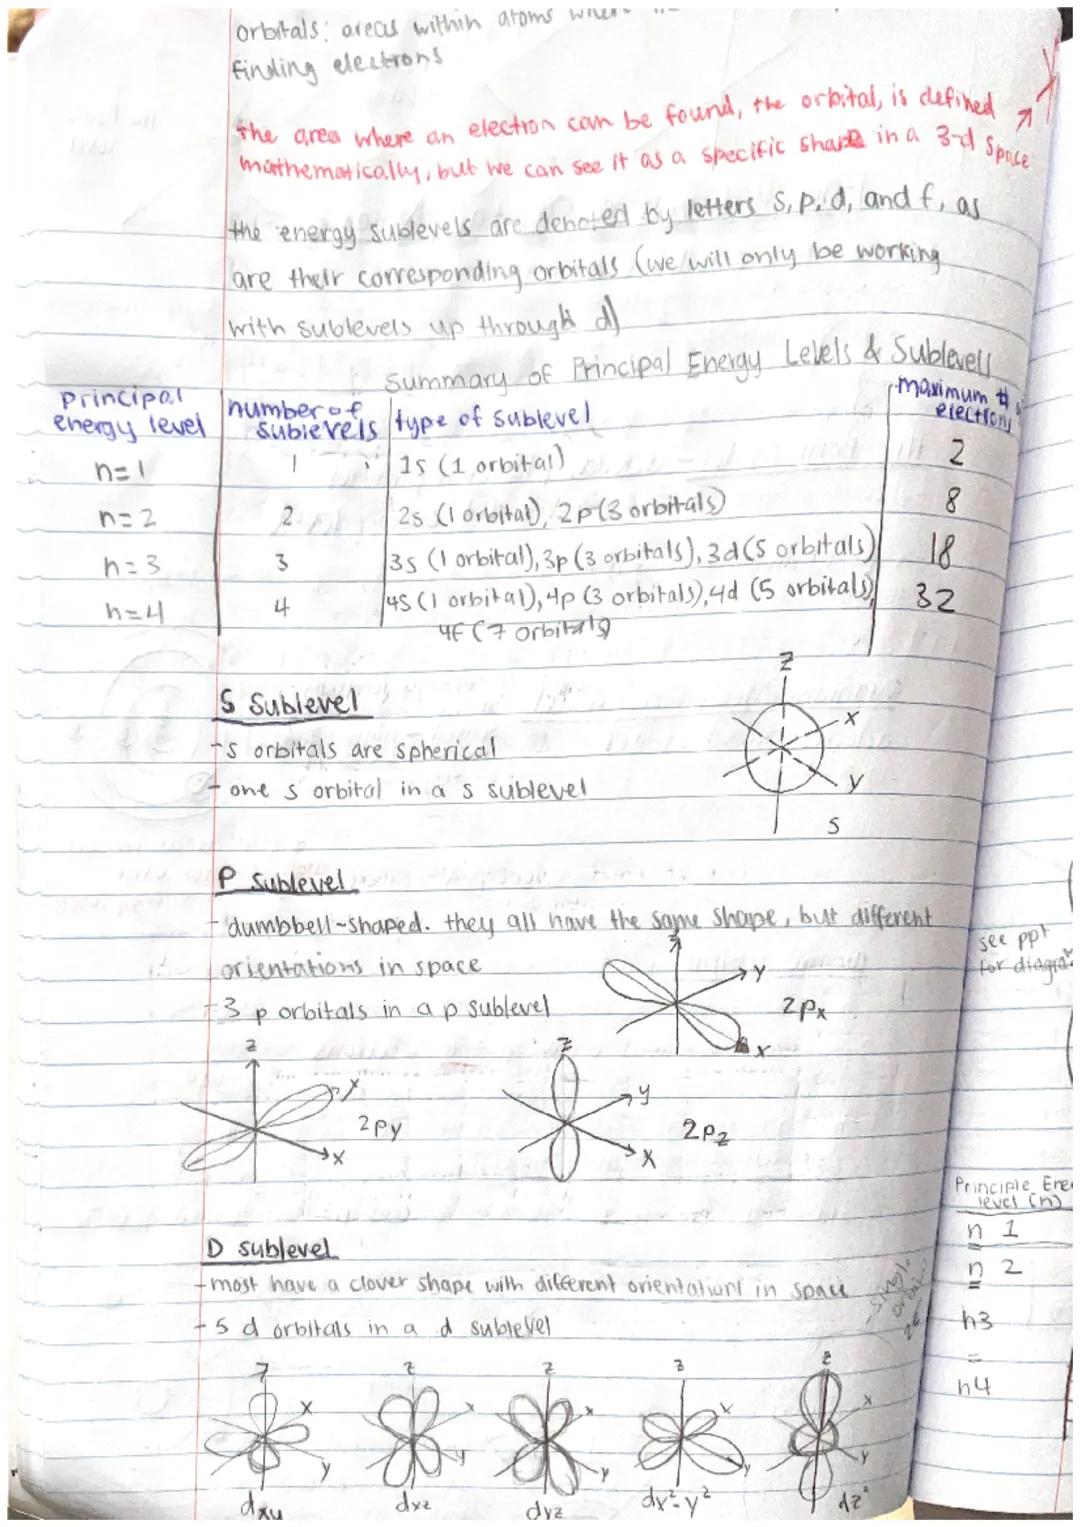 orbitals: areas within atoms where
finding electrons
the area where an electron can be found, the orbital, is defined
mathematically, but we can see it as a specific shape in a 3-d space
the energy sublevels are denoted by letters s, p, d, and f, as
are their corresponding orbitals (we will only be working
with sublevels up through d)
Summary of Principal Energy Levels & Sublevels
principal energy level | number of sublevels | type of sublevel | maximum # of electrons
n=1 | 1 | 1s (1 orbital) | 2
n=2 | 2 | 2s (1 orbital), 2p (3 orbitals) | 8
n=3 | 3 | 3s (1 orbital), 3p (3 orbitals), 3d (5 orbitals) | 18
n=4 | 4 | 4s (1 orbital), 4p (3 orbitals), 4d (5 orbitals), | 32
4f (7 orbitals)
S Sublevel
-s orbitals are spherical
- one s orbital in a s sublevel
z
x
y
s
P Sublevel
- dumbbell-shaped. they all have the same shape, but different
orientations in space
- 3 p orbitals in a p sublevel
z
y
x
2px
z
y
x
2py
z
y
x
2pz
see ppt
for diagra
D sublevel
- most have a clover shape with different orientations in space
- 5 d orbitals in a d sublevel
z x y
z x y
z x y
z x y
z x y
dxy
dxz
dyz
dx²-y²
dz²
Principle Ene
level (n)
n 1
n 2
n3
n4